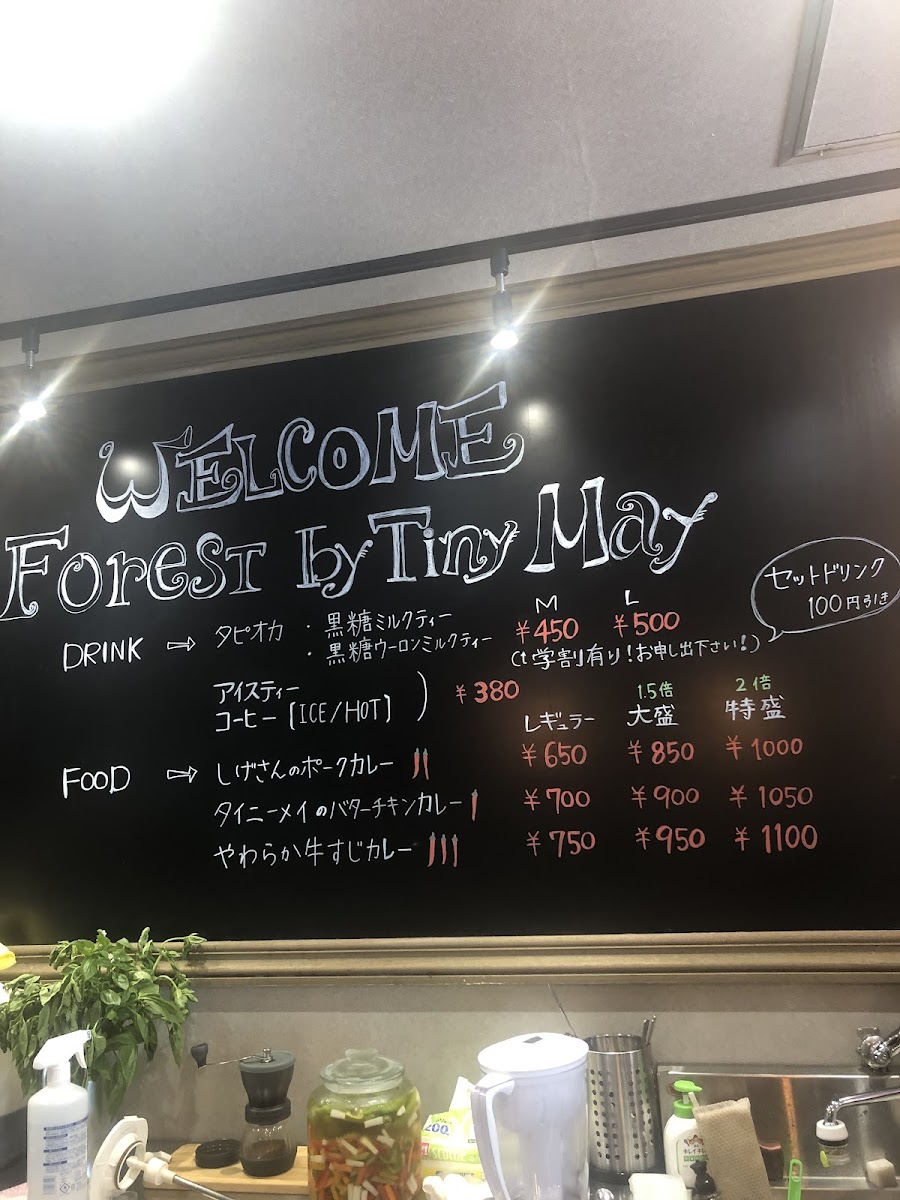 WELCOME
Forest by Tiny May
セットドリンク
100円引き
DRINK ⇨ タピオカ ・黒糖ミルクティー
・黒糖ウーロンミルクティー
M L
¥450 ¥500
(学割有り!お申し出下さい!)
アイスティー
コーヒー [ICE/HOT] ) ¥380
1.5倍 2倍
レギュラー 大盛 特盛
FOOD ⇨ しげさんのポークカレー ¥650 ¥850 ¥1000
タイニーメイのバターチキンカレー ¥700 ¥900 ¥1050
やわらか牛すじカレー ¥750 ¥950 ¥1100
200